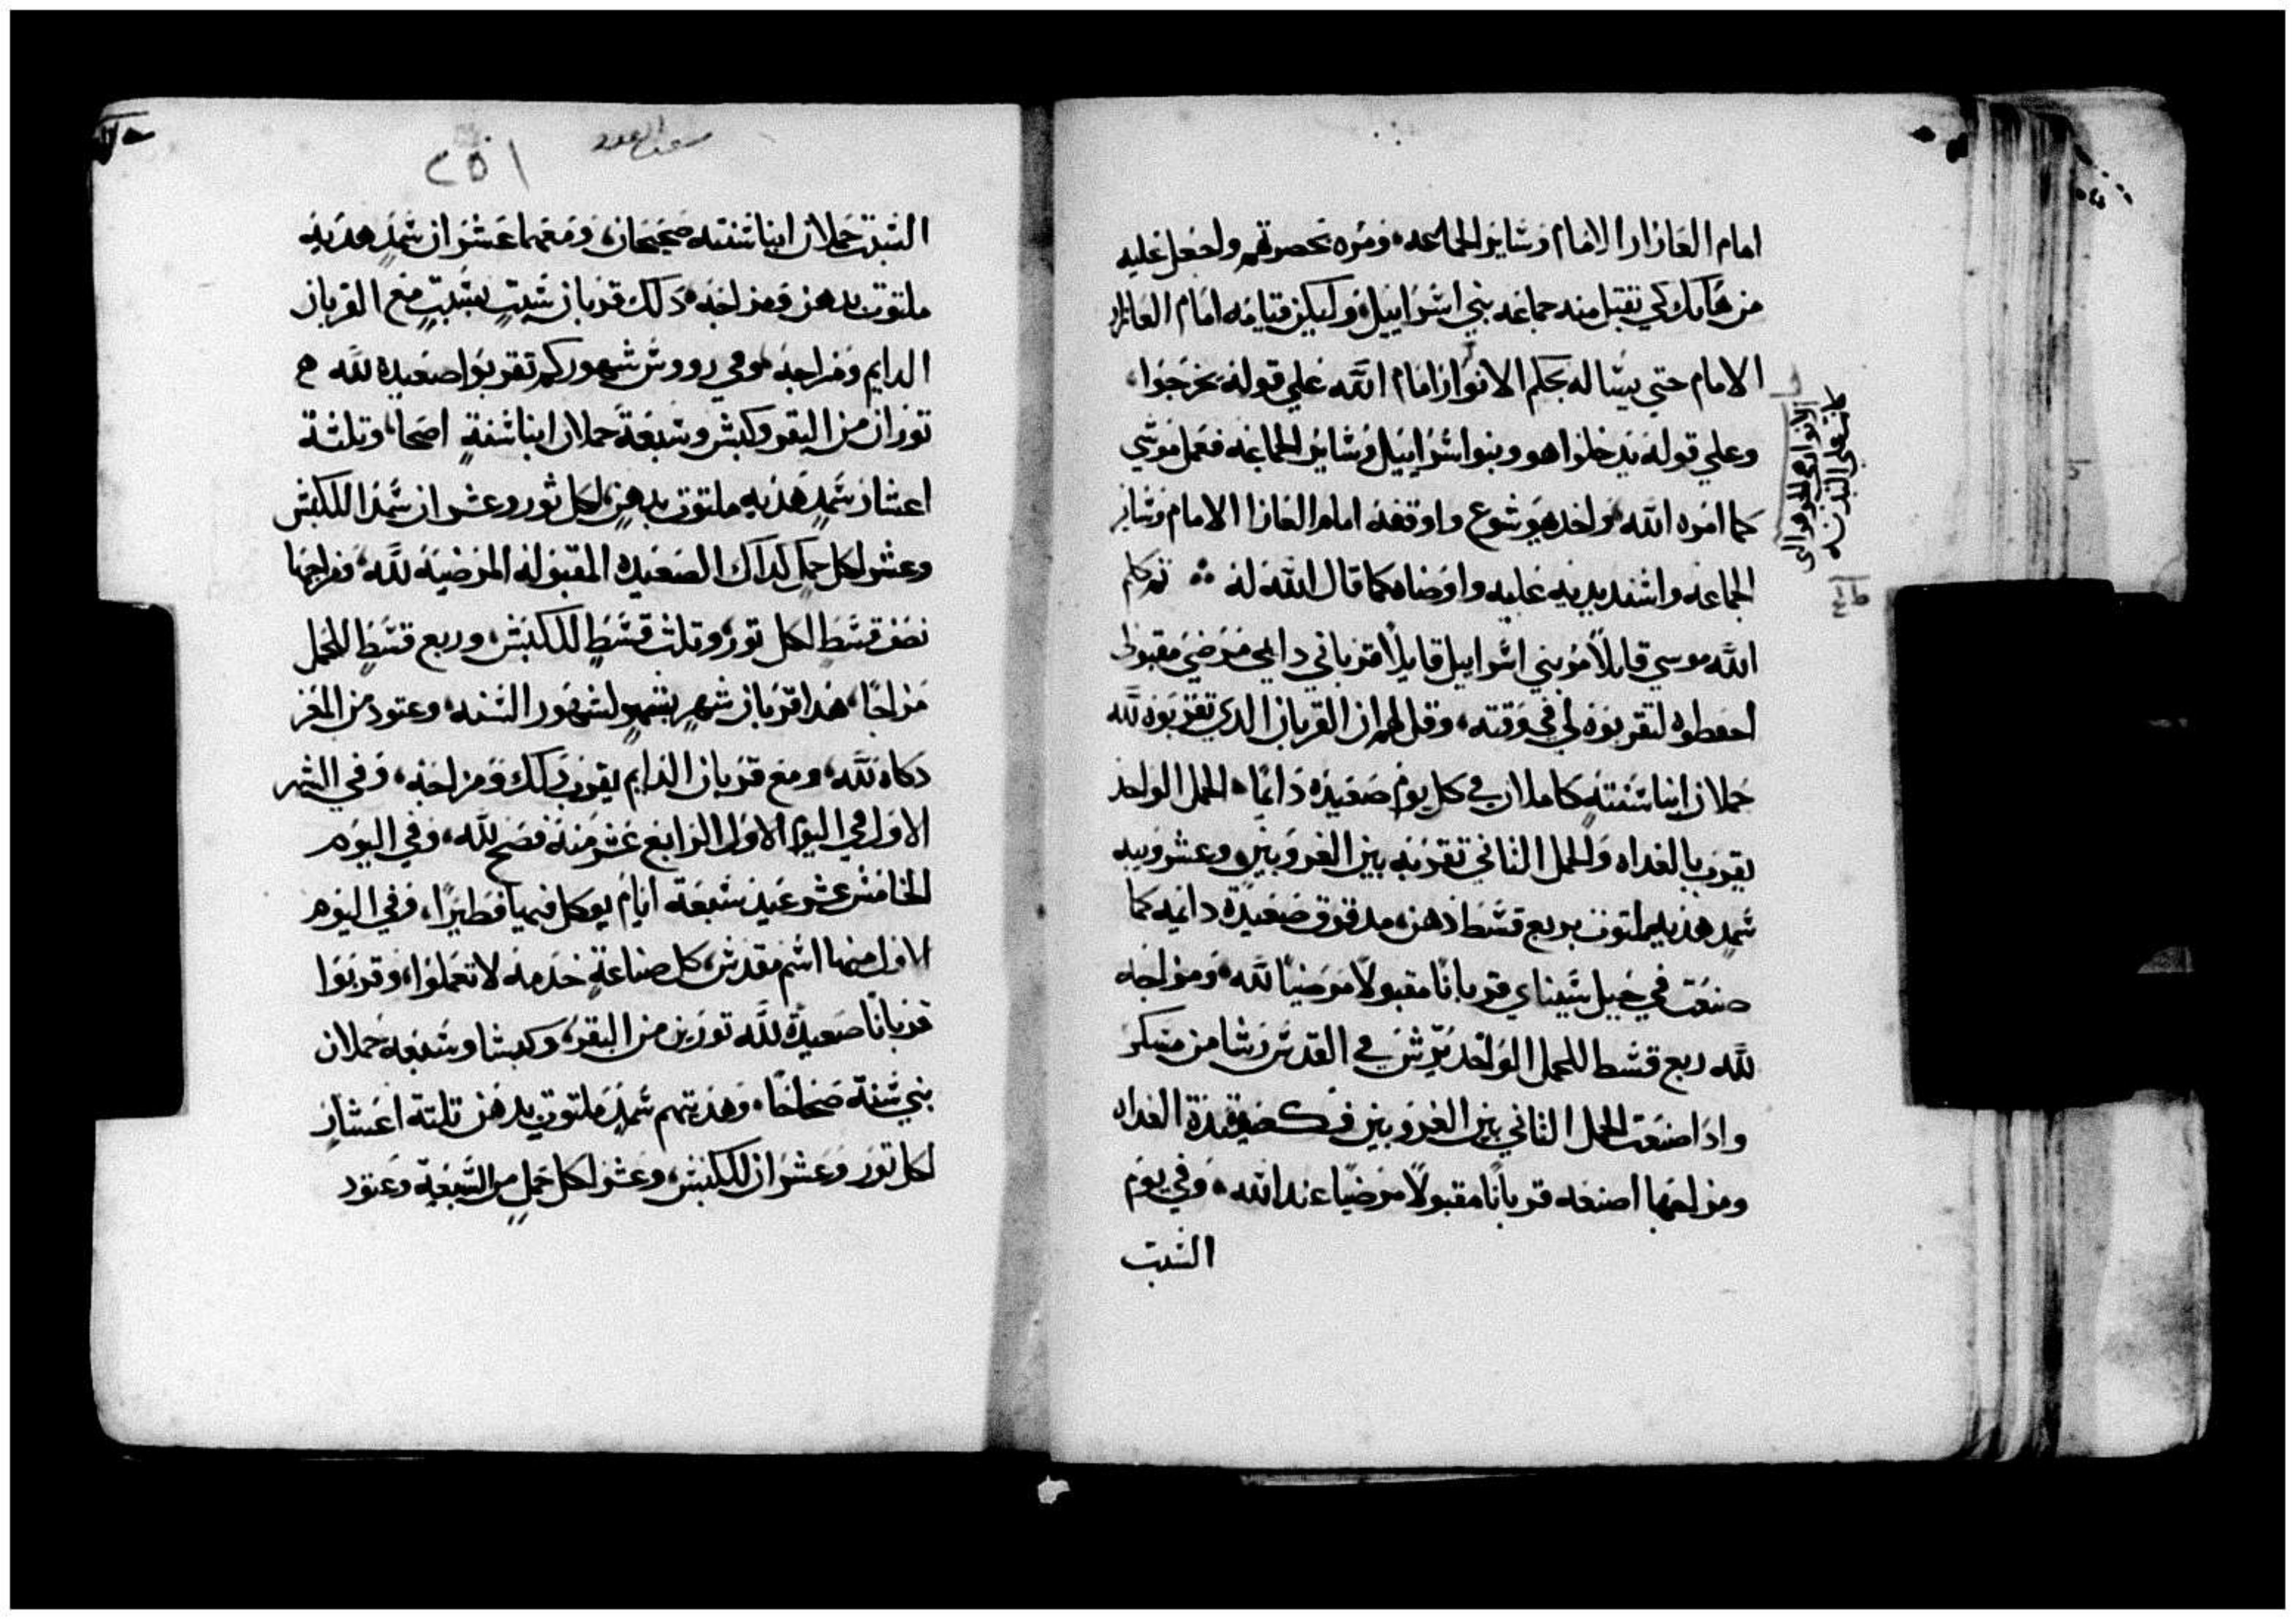 امام العازار الامام وشاير الجماعه ومره بحصرتهم واجعل عليه
من هَابك كي تقبل منه جماعه بني اشراييل وليكن قيامه امام العازار
الامام حتي يشاله بحكم الانوار امام الله علي قوله يخرجوا
وعلي قوله يدخلوا هو وبنوا اشراييل وشاير الجماعه فعمل موشي
كما امره الله واخد هوشوع واوقفه امام العازا الامام وشاير
الجماعه واشند يديه عليه واوصاه كما قال الله له ثم كلم
الله موسي قايلاً مر بني اشراييل قايلاً قرباني دايمي مرضي مقبول
احفطوه لتقربوه لي في وقته وقل لهم ان القربان الدي تقربوه لله
حملان ابنا شنته كاملان في كل يوم صعيده دايمًا الحمل الواحد
يقرب بالغداه والحمل الثاني تقربه بين الغروبين وعشر ويبه
شمد هديه ملتوت بربع قشط دهن مدقوق صعيدة دايمه كما
صنعت في جبل شيناي قربانًا مقبولاً مرضيًا لله ومزاجه
لله ربع قشط للحمل الواحد يرش في القدش رشا من مسكر
وادا صنعت الحمل الثاني بين الغروبين فكصعيدة الغداه
ومزاجها اصنعه قربانًا مقبولاً مرضيًا عند الله وفي يوم
السبت
الانوار هي الجوهر الذي
كانت علي البدنه
٢٥١
الشبت حملان ابنا شنته صحيحان ومعهما عشران شمد هديه
ملتوت بدهن ومزاجه دلك قربان شبت بشبت مع القربان
الدايم ومزاجه وفي رووش شهوركم تقربوا صعيده لله
توران من البقر وكبش وشبعة حملان ابنا شنة اصحا وتلثة
اعشار شمد هديه ملتوت بدهن لكل ثور وعشران شمدا للكبش
وعشر لكل حمل كداك الصعيده المقبوله المرضيه لله ومزاجها
نصف قشط لكل تور وتلث قشط للكبش وربع قشط للحمل
مزاجًا هدا قربان شهر بشهر لشهور الشنه وعتود من المعز
دكاه لله ومع قربان الدايم يقرب دلك ومزاجه وفي الشهر
الاول في اليوم الاول الرابع عشر منه فصح لله وفي اليوم
الخامش عشر عيد شبعة ايام يوكل فيها فطيرًا وفي اليوم
الاول منها اشم مقدش كل صناعة خدمه لا تعملوا وقربوا
قربانًا صعيدة لله تورين من البقر وكبشا وشبعة حملان
بني شنة صحاحًا وهديتهم شمد ملتوت بدهن تلتة اعشار
لكل تور وعشران للكبش وعشر لكل حمل من الشبعة وعتود